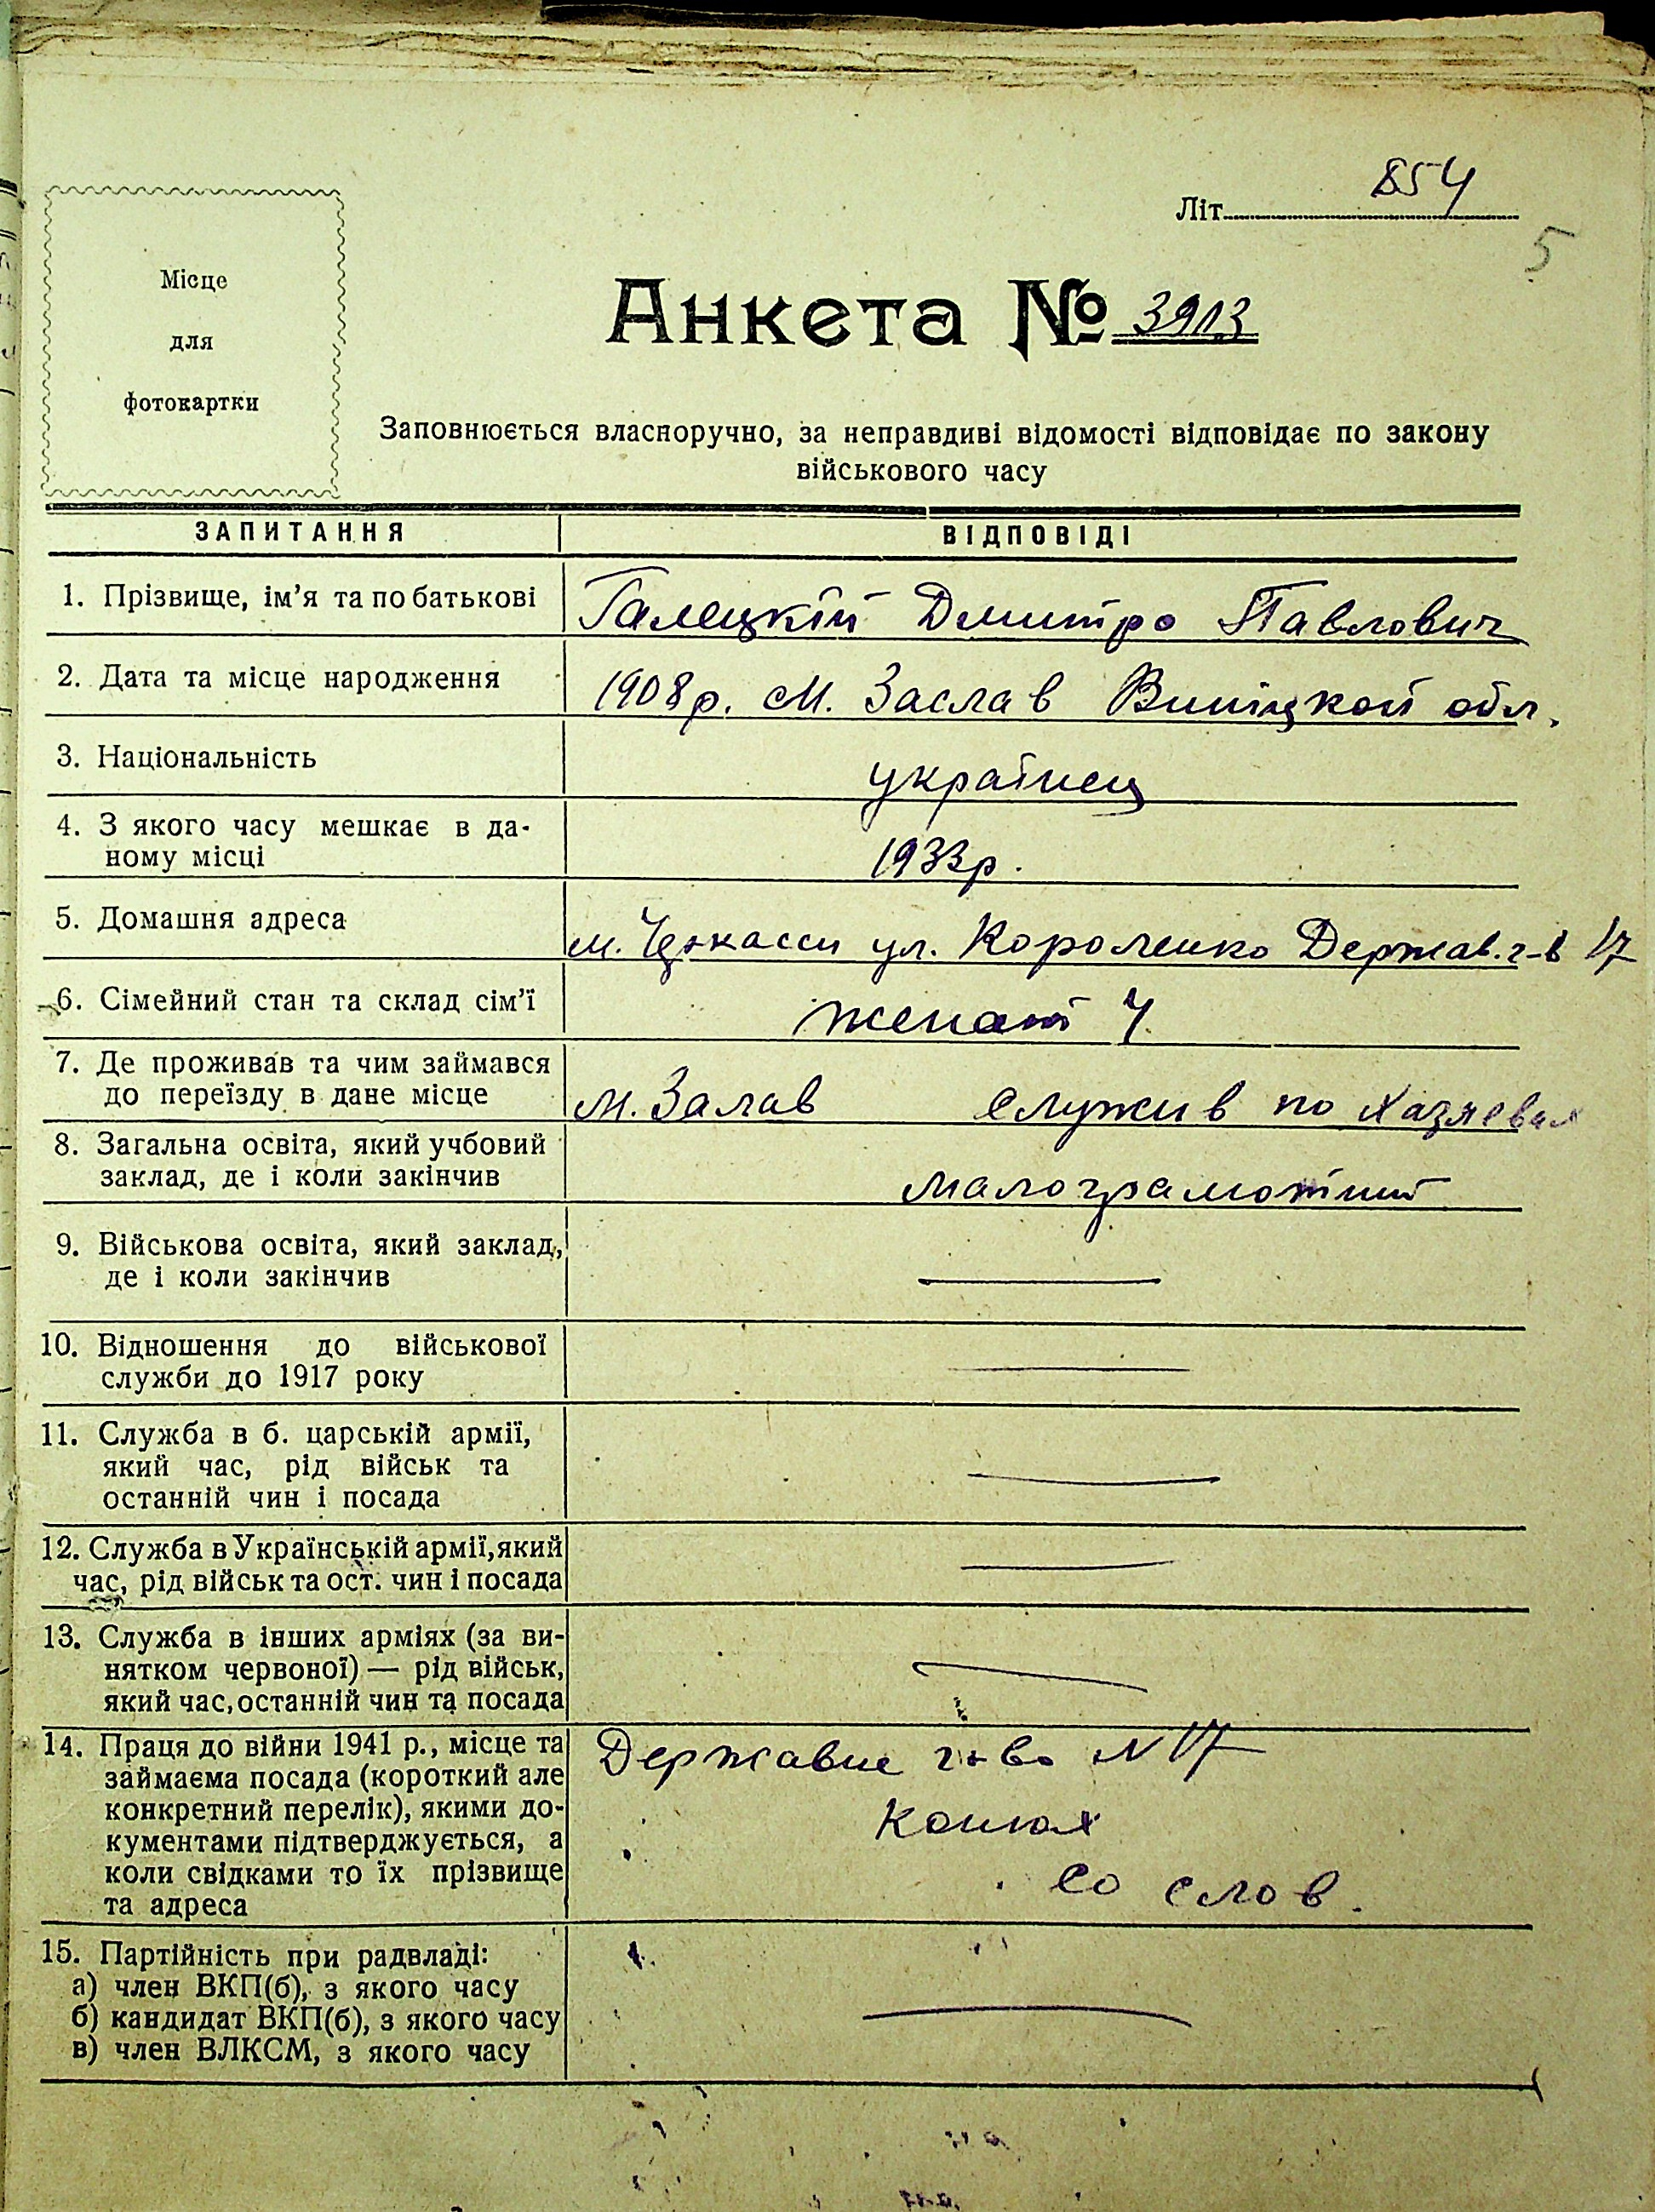 Літ. 854
5
Місце
для
фотокартки
Анкета № 3913
Заповнюється власноручно, за неправдиві відомості відповідає по закону
військового часу
ЗАПИТАННЯ ВІДПОВІДІ
1. Прізвище, ім'я та по батькові Галецкій Дмитро Павлович
2. Дата та місце народження 1908р. м. Заслав Вініцкой обл.
3. Національність україпец
4. З якого часу мешкає в да-
ному місці 1933р.
5. Домашня адреса м. Черкасси ул. Короленко Держав. г-в 17
6. Сімейний стан та склад сім'ї женат 4
7. Де проживав та чим займався
до переїзду в дане місце м. Залав служив по хазяевах
8. Загальна освіта, який учбовий
заклад, де і коли закінчив малограмотний
9. Військова освіта, який заклад,
де і коли закінчив —
10. Відношення до військової
служби до 1917 року —
11. Служба в б. царській армії,
який час, рід військ та
останній чин і посада —
12. Служба в Українській армії, який
час, рід військ та ост. чин і посада —
13. Служба в інших арміях (за ви-
нятком червоної) — рід військ,
який час, останній чин та посада —
14. Праця до війни 1941 р., місце та
займаєма посада (короткий але
конкретний перелік), якими до-
кументами підтверджується, а
коли свідками то їх прізвище
та адреса
Державне г-во N 17
конюх
со слов.
15. Партійність при радвладі:
а) член ВКП(б), з якого часу
б) кандидат ВКП(б), з якого часу
в) член ВЛКСМ, з якого часу
—